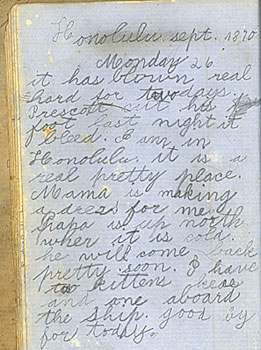 Honolulu. sept. 1870
Monday 26
it has blown real
hard for two days.
Prescott cut his
foot last night it
bleed. I am in
Honolulu. it is a
real pretty place.
Mama is making
a dress for me.
Papa is up north
wher it is cold.
he will come back
pretty soon. I have
too kittens heas
and one aboard
the ship. good by
for today.